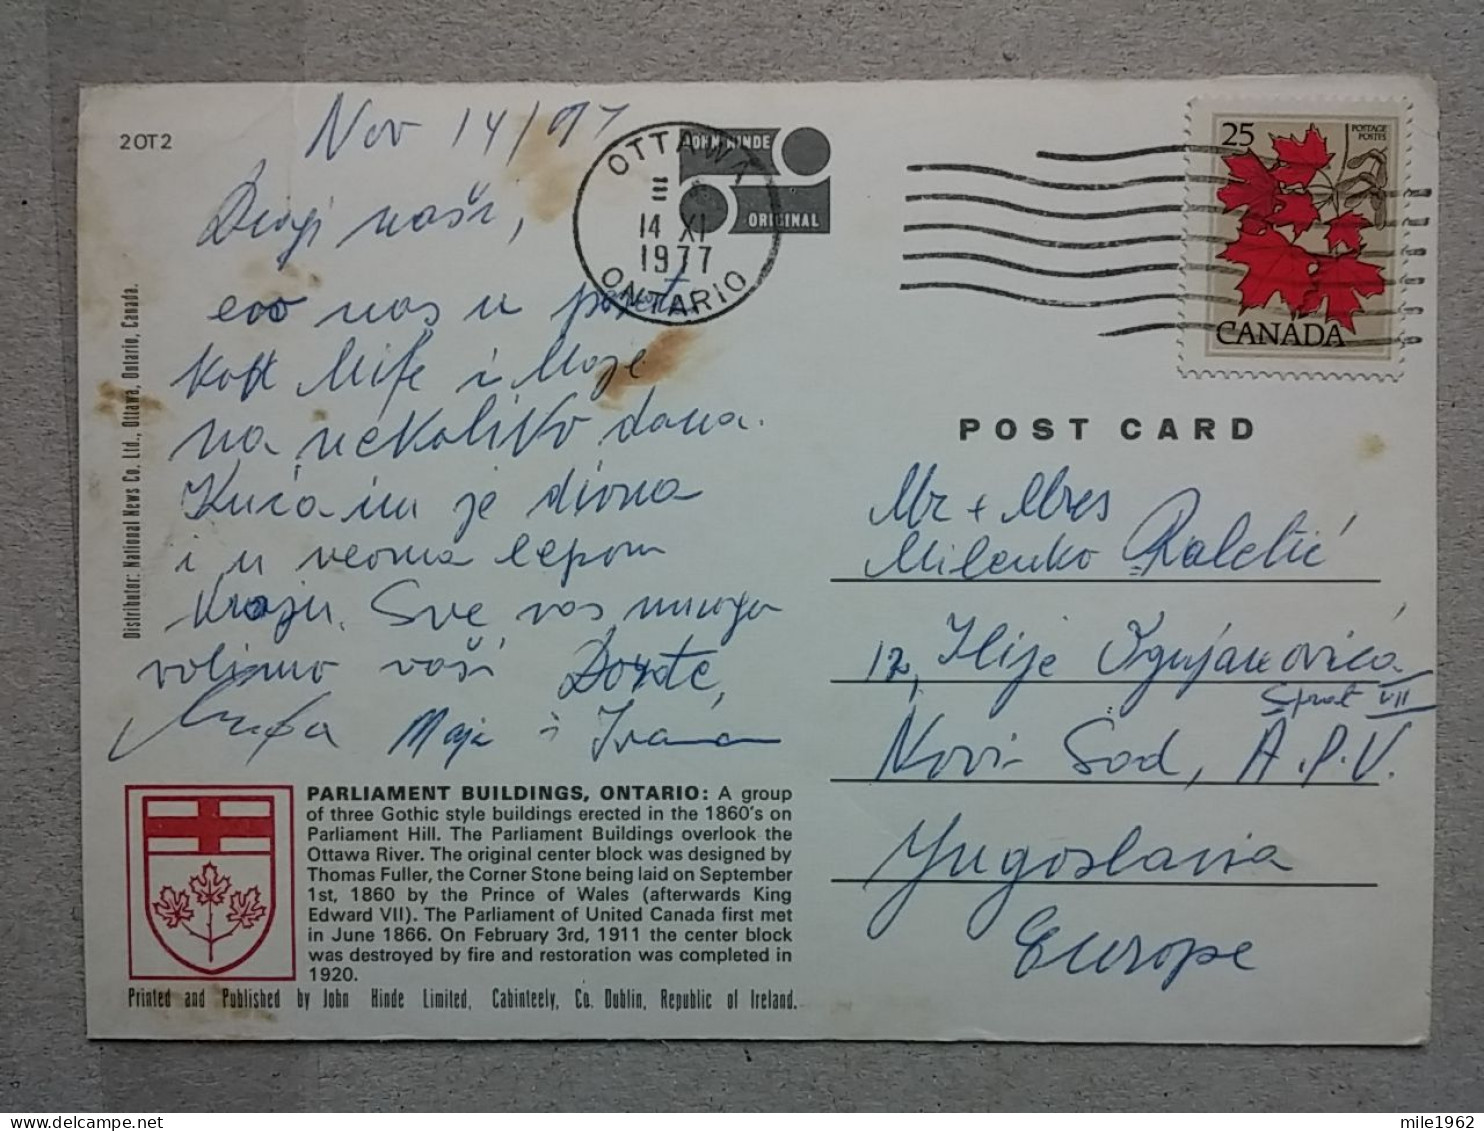 2OT2
Nov 14/97
JOHN HINDE
ORIGINAL
OTTAWA
14 XI
1977
ONTARIO
25
POSTAGE
POSTES
CANADA
Dragi naši,
evo nas u poseti
kod Mife i Maze
na nekoliko dana.
Kuća im je divna
i u veoma lepom
kraju. Sve vas mnogo
volimo vaši Đorđe,
Maja i Ivana
Distributor: National News Co. Ltd., Ottawa, Ontario, Canada.
POST CARD
Mr + Mres
Milenko Raletić
12, Ilije Ognjanovića
Sprat VII
Novi-Sad, A.P.V.
Yugoslavia
Europe
PARLIAMENT BUILDINGS, ONTARIO: A group
of three Gothic style buildings erected in the 1860's on
Parliament Hill. The Parliament Buildings overlook the
Ottawa River. The original center block was designed by
Thomas Fuller, the Corner Stone being laid on September
1st, 1860 by the Prince of Wales (afterwards King
Edward VII). The Parliament of United Canada first met
in June 1866. On February 3rd, 1911 the center block
was destroyed by fire and restoration was completed in
1920.
Printed and Published by John Hinde Limited, Cabinteely, Co. Dublin, Republic of Ireland.
mile1962